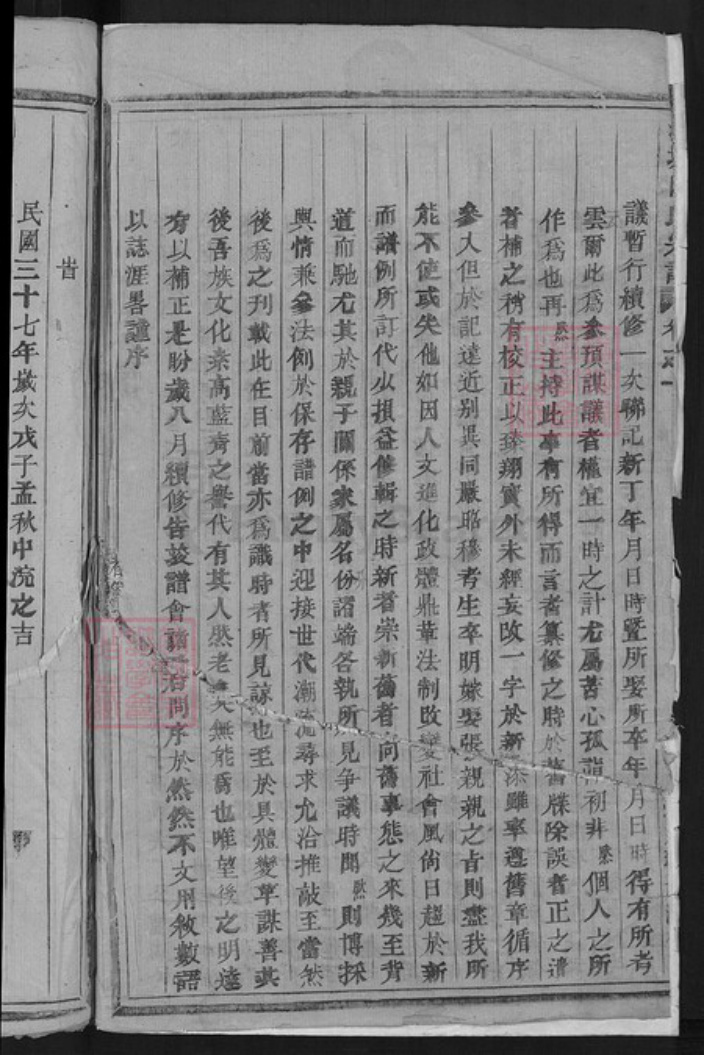 議暫行續修一次聯記新丁年月日時暨所娶所卒年月日時得有所考
雲爾此為參預謀議者權宜一時之計尤屬苦心孤詣初非然個人之所
作為也再然主持此事有所得而言者纂修之時於舊牒除誤者正之遺
者補之稍有校正以臻翔實外未經妄改一字於新添雖率遵舊章循序
參入但於記遠近別異同嚴昭穆考生卒明嫁娶張親親之旨則盡我所
能不使或失他如因人文進化政體鼎革法制改變社會風尚日趨於新
而譜例所訂代少損益修輯之時新者崇新舊者尚舊事態之來幾至背
道而馳尤其於親子關係家屬名份諸端各執所見爭議時聞然則博採
輿情兼參法例於保存譜例之中迎接世代潮流尋求允洽推敲至當然
後為之刊載此在目前當亦為識時者所見諒也至於具體變革謀善其
後吾族文化素高藍青之譽代有其人然老矣無能為也唯望後之明達
有以補正是盼歲八月續修告竣譜會諸君問序於然然不文用敘數語
以誌涯畧謹序
旹
民國三十七年歲次戊子孟秋中浣之吉